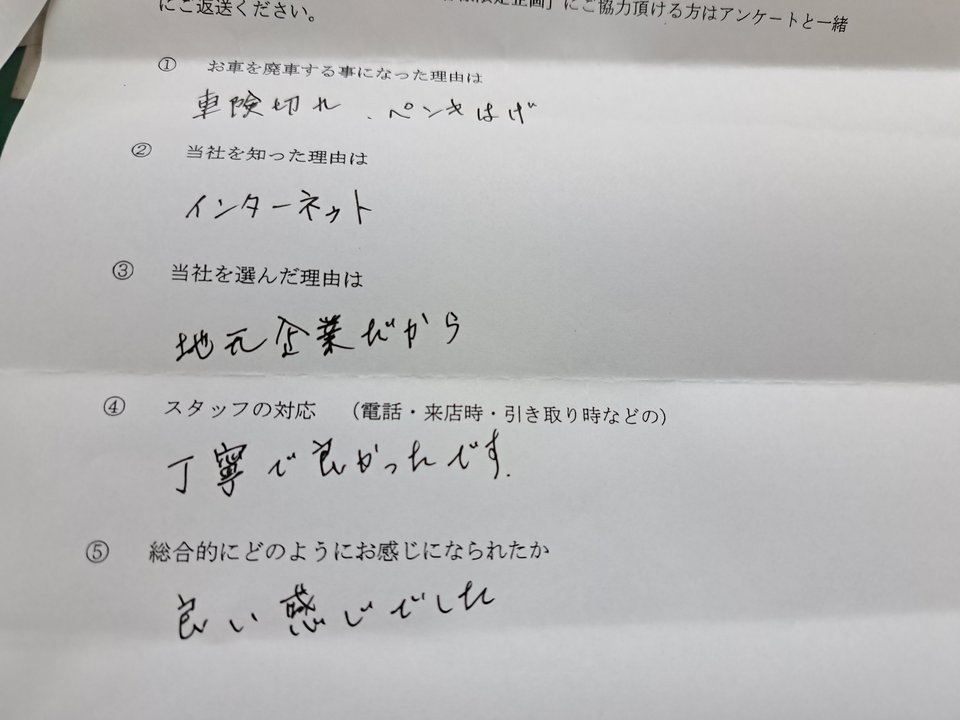 限定企画」にご協力頂ける方はアンケートと一緒
にご返送ください。
① お車を廃車する事になった理由は
車険切れ、ペンキはげ
② 当社を知った理由は
インターネット
③ 当社を選んだ理由は
地元企業だから
④ スタッフの対応 （電話・来店時・引き取り時などの）
丁寧で良かったです.
⑤ 総合的にどのようにお感じになられたか
良い感じでした